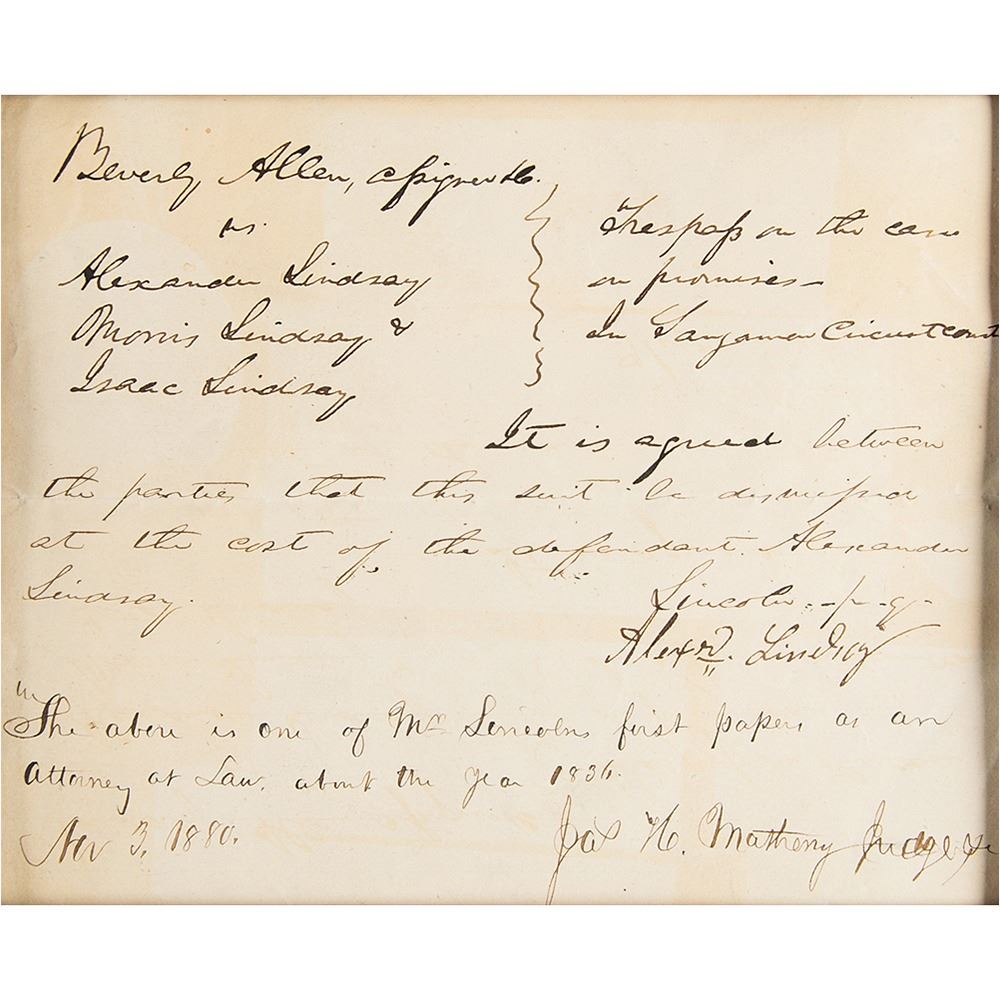 Beverly Allen, assignee &c.
vs.
Alexander Lindsay
Morris Lindsay &
Isaac Lindsay
Trespass on the case
on promises—
In Sangamon Circuit court
It is agreed between
the parties that this suit be dismissed
at the cost of the defendant. Alexander
Lindsay.
Lincoln. p. q.
Alexr. Lindsay
The above is one of Mr Lincolns first papers as an
Attorney at Law, about the year 1836.
Nov 3, 1880.
Jas H. Matheny Judge &c